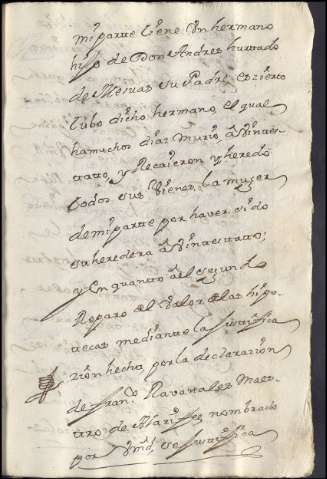 mi parte tiene Un hermano
hijo de Don Andres hurtado
de Mesvas su Padre, es zierto
tubo dicho hermano, el qual
ha muchos dias Murio abintes-
tato, y Recaieron, y heredo
todos sus Vienes, la muger
de mi parte por haver sido
su heredera abintestato;
y En quanto al segundo
Reparo el Valor de las hipo-
tecas mediante la Justifica
zion hecha por la declarazion
de Fran.co Ravanales Maes-
tro de Alarifes nombrado
por Vmd, se Justifica